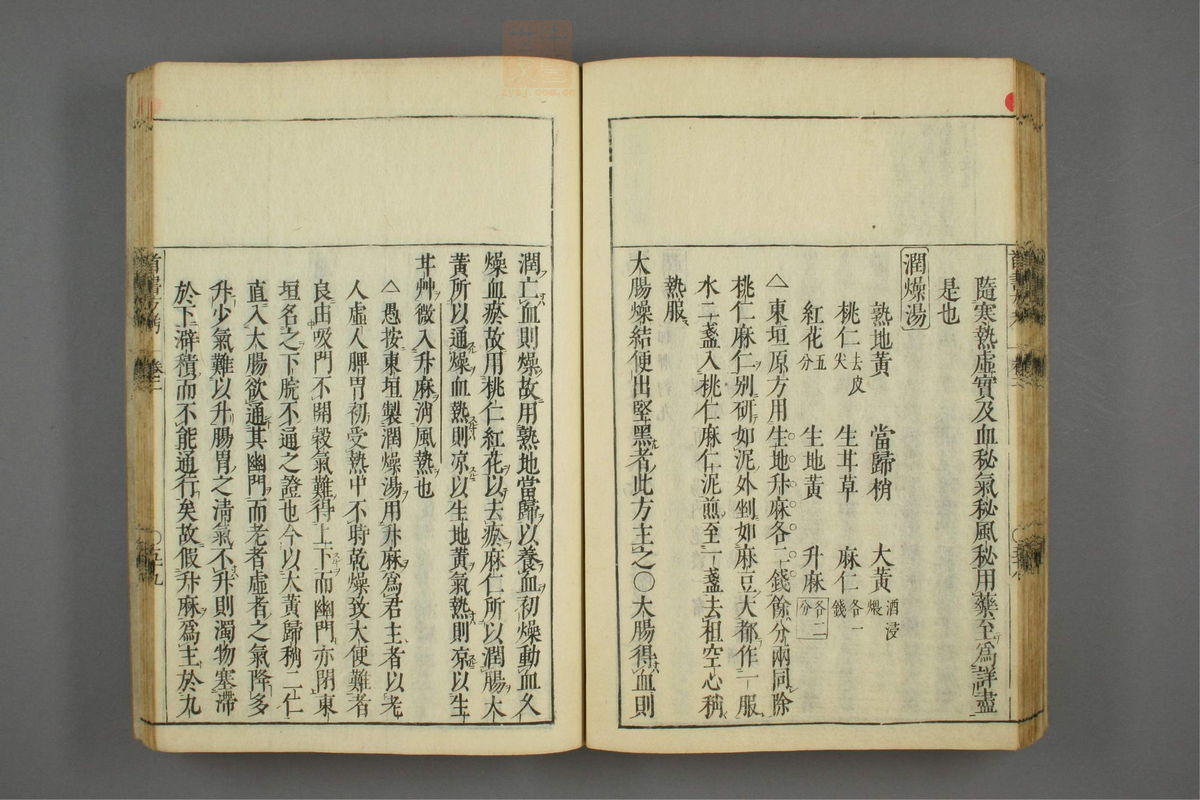 隨寒熱虛實及血秘氣秘風秘用藥至爲詳盡
是也
潤燥湯
熟地黃 當歸梢 大黃酒浸煨
桃仁去皮尖 生甘草 麻仁各一錢
紅花五分 生地黃 升麻各二分
△東垣原方用生地升麻各二錢餘分兩同除
桃仁麻仁別硏如泥外剉如麻豆大都作一服
水二盞入桃仁麻仁泥煎至一盞去柤空心稍
熱服
大腸燥結便出堅黑者此方主之○大腸得血則
潤亡血則燥故用熟地當歸以養血初燥動血久
燥血瘀故用桃仁紅花以去瘀麻仁所以潤腸大
黃所以通燥血熱則凉以生地黃氣熱則凉以生
甘艸微入升麻消風熱也
△愚按東垣製潤燥湯用升麻爲君主者以老
人虛人脾胃初受熱中不時乾燥致大便難者
良由吸門不開穀氣難得上下而幽門亦閉東
垣名之下脘不通之證也今以大黃歸稍二仁
直入大腸欲通其幽門而老者虛者之氣降多
升少氣難以升腸胃之淸氣不升則濁物塞滯
於下澼積而不能通行矣故假升麻爲主於丸